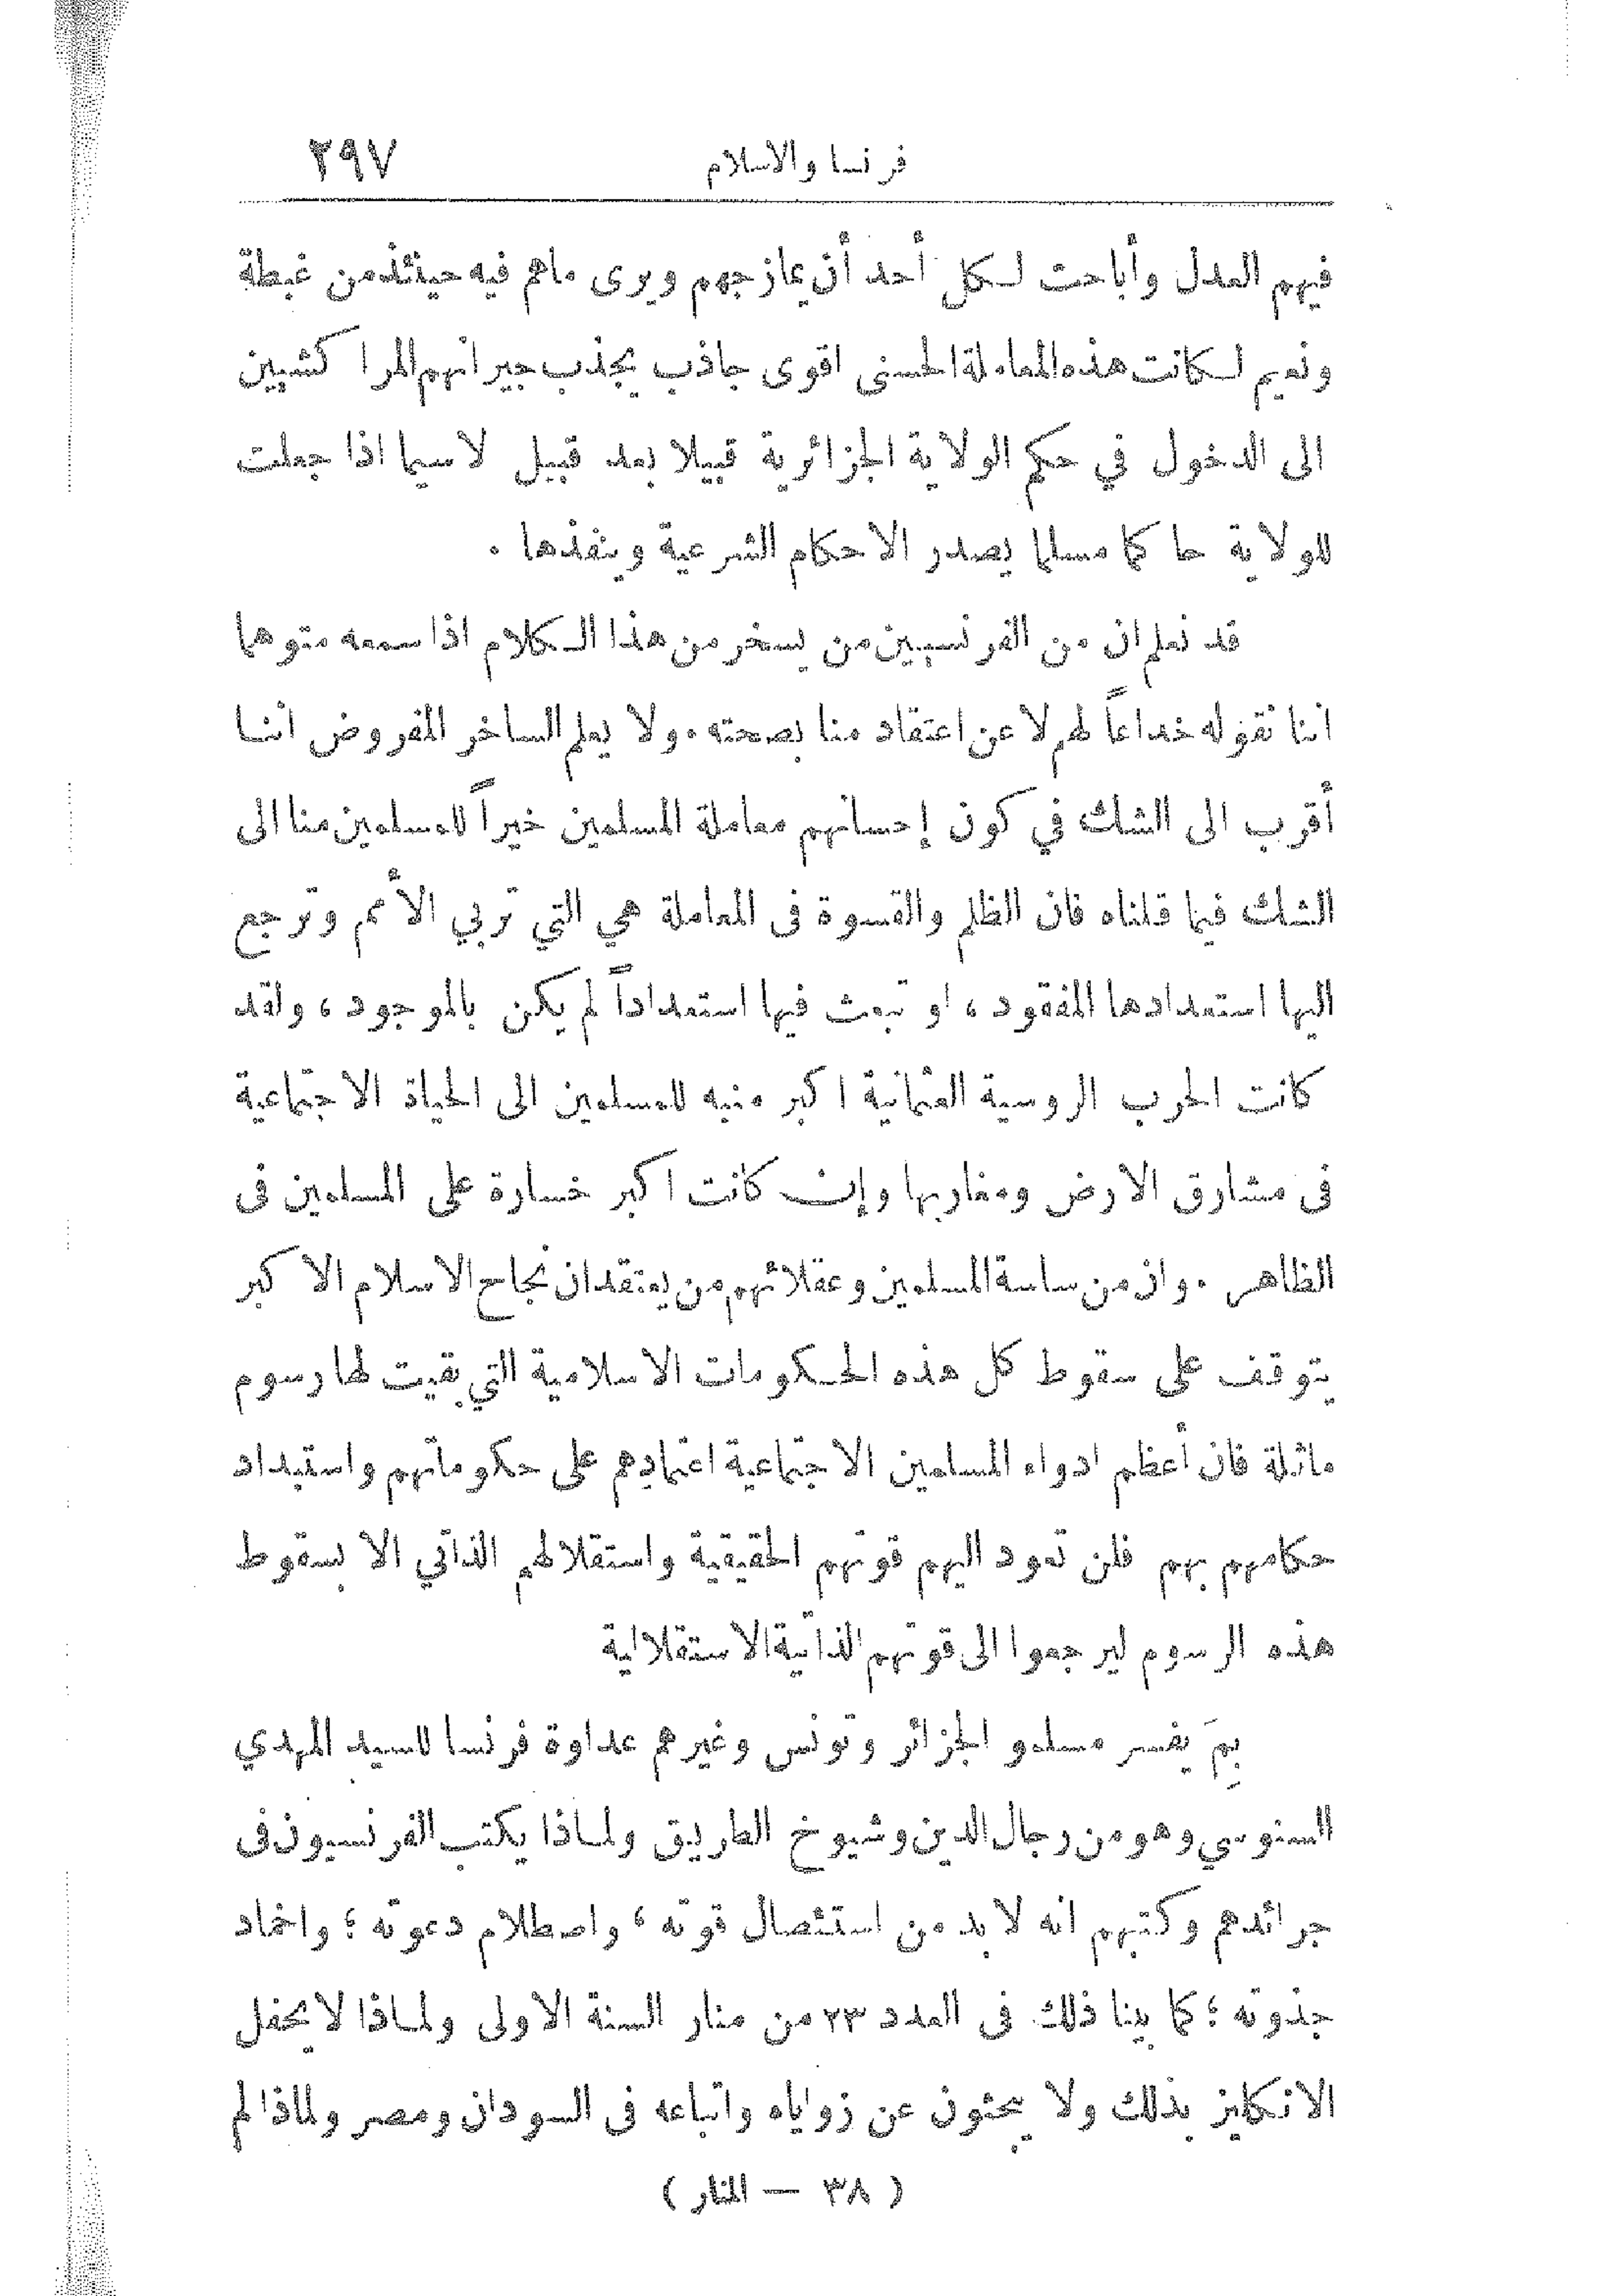 فرنسا والاسلام ٢٩٧
فيهم العدل وأباحت لكل أحد أن يمازجهم ويرى ماهم فيه حينئذ من غبطة
ونعيم لكانت هذه المعاملة الحسنى اقوى جاذب يجذب جيرانهم المراكشيين
الى الدخول في حكم الولاية الجزائرية قبيلا بعد قبيل لاسيما اذا جعلت
للولاية حاكما مسلما يصدر الاحكام الشرعية وينفذها .
قد نعلم ان من الفرنسيين من يسخر من هذا الكلام اذا سمعه متوهما
اننا نقوله خداعاً لهم لا عن اعتقاد منا بصحته . ولا يعلم الساخر المفروض اننا
أقرب الى الشك في كون إحسانهم معاملة المسلمين خيراً للمسلمين منا الى
الشك فيما قلناه فان الظلم والقسوة فى المعاملة هي التي تربي الأمم وترجع
اليها استعدادها المفقود ، او تبعث فيها استعداداً لم يكن بالموجود ، ولقد
كانت الحرب الروسية العثمانية اكبر منبه للمسلمين الى الحياة الاجتماعية
فى مشارق الارض ومغاربها وإن كانت اكبر خسارة على المسلمين فى
الظاهر . وان من ساسة المسلمين وعقلائهم من يعتقد ان نجاح الاسلام الاكبر
يتوقف على سقوط كل هذه الحكومات الاسلامية التي بقيت لها رسوم
ماثلة فان أعظم ادواء المسلمين الاجتماعية اعتمادهم على حكوماتهم واستبداد
حكامهم بهم فلن تعود اليهم قوتهم الحقيقية واستقلالهم الذاتي الا بسقوط
هذه الرسوم ليرجعوا الى قوتهم الذاتية الاستقلالية
بِمَ يفسر مسلمو الجزائر وتونس وغيرهم عداوة فرنسا للسيد المهدي
السنوسي وهو من رجال الدين وشيوخ الطريق ولماذا يكتب الفرنسيون فى
جرائدهم وكتبهم انه لا بد من استئصال قوته ، واصطلام دعوته ؛ واخماد
جذوته ؛ كما بينا ذلك فى العدد ٢٣ من منار السنة الاولى ولماذا لا يحفل
الانكليز بذلك ولا يبحثون عن زواياه واتباعه فى السودان ومصر ولماذا لم
( ٣٨ — المنار )